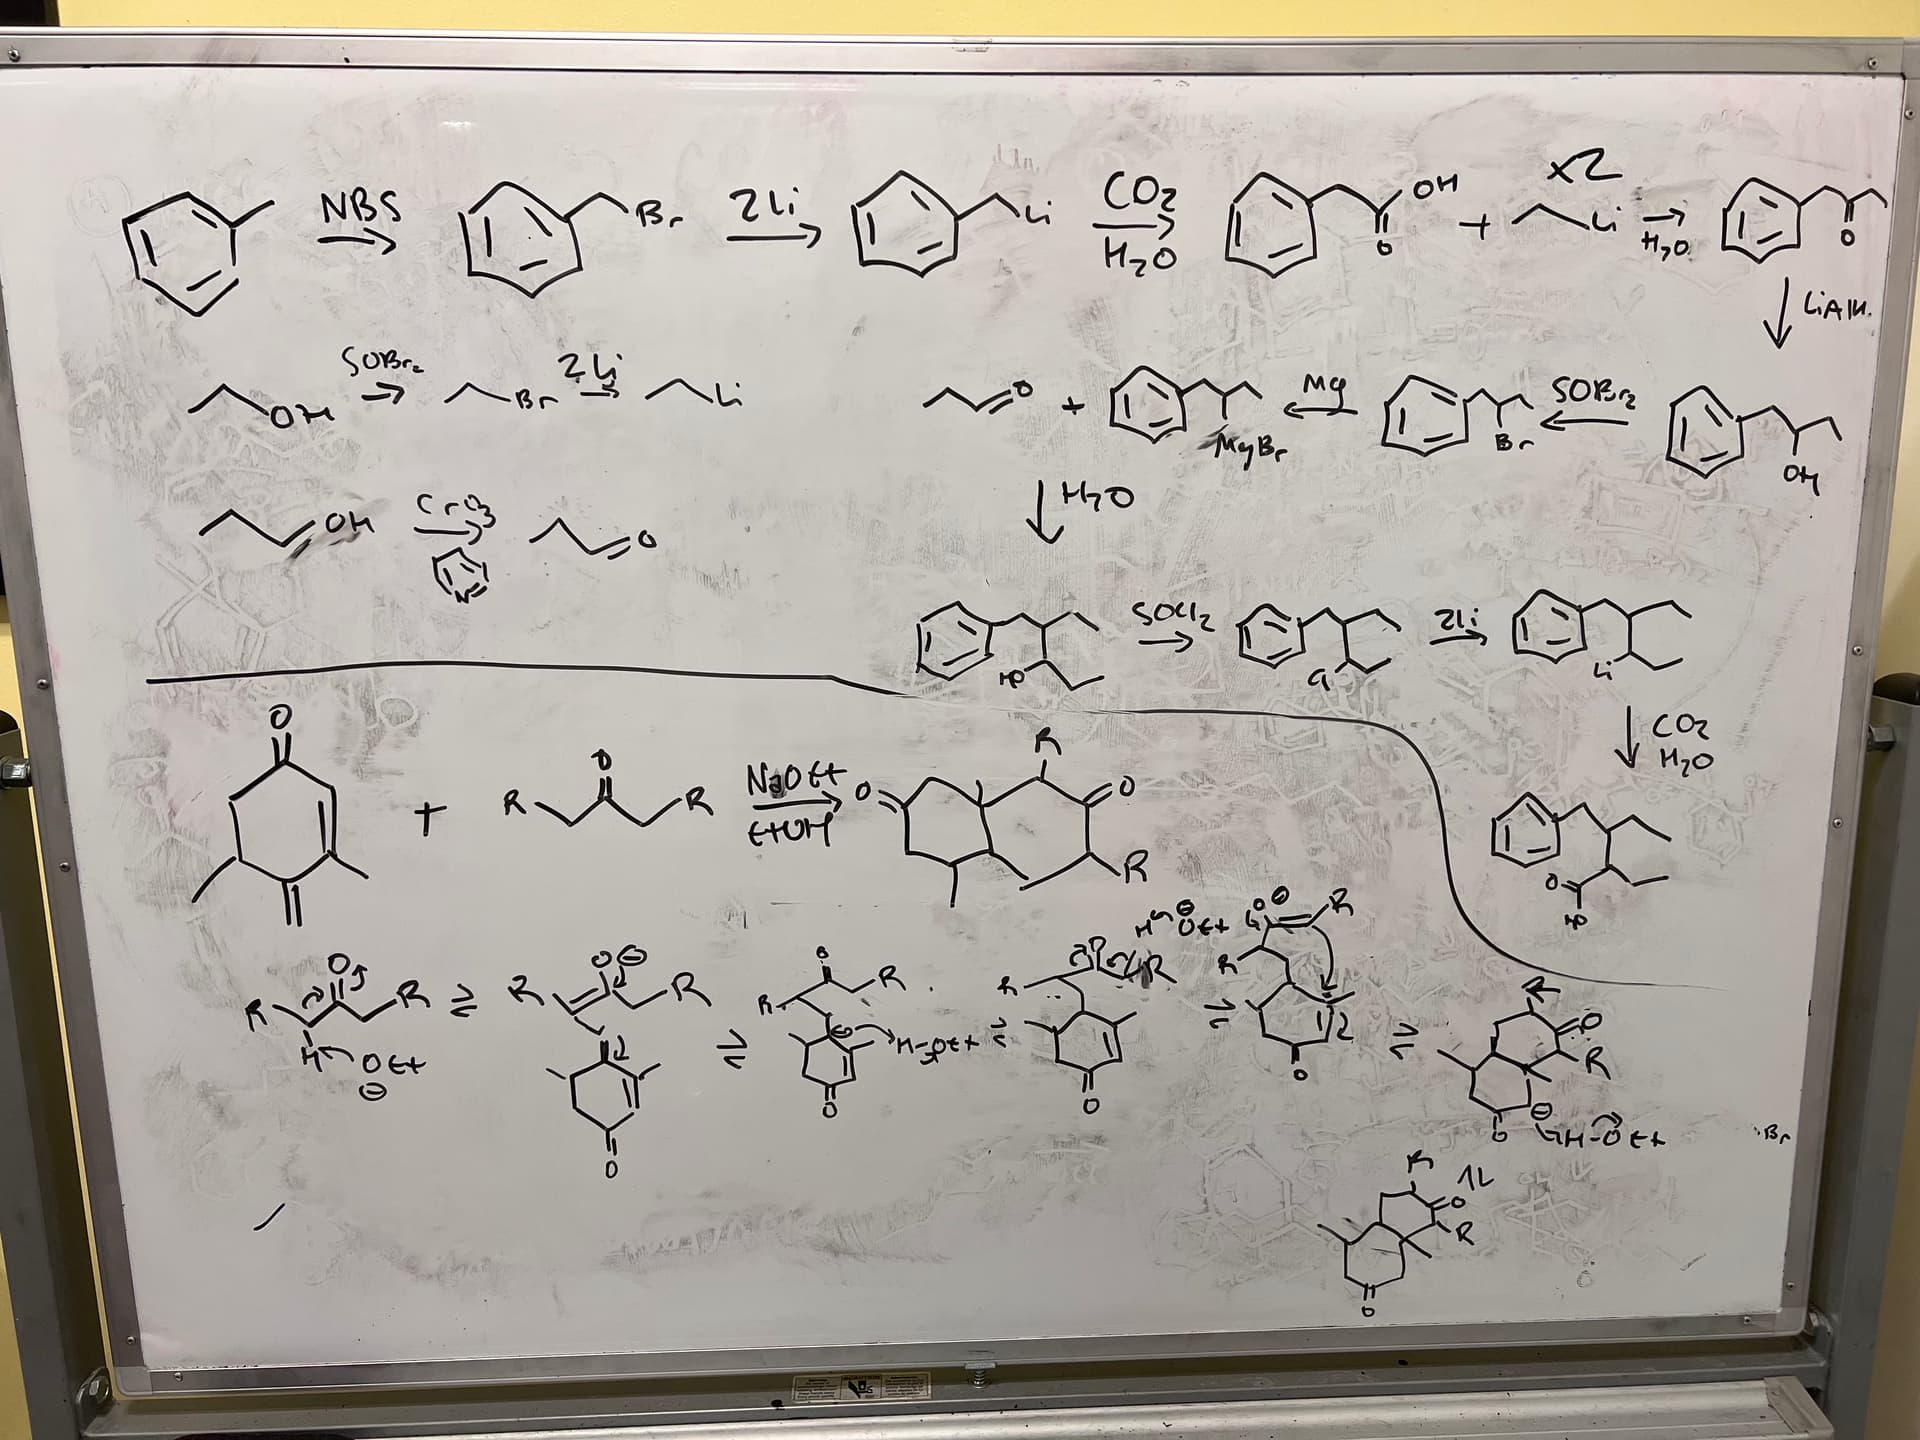 NBS
Br
2Li
Li
CO2
H2O
OH
O
+
x2
Li
H2O
O
LiAlH.
SOBr2
OH
Br
2Li
Li
O
+
MgBr
Mg
Br
SOBr2
OH
OH
CrO3
N
O
H2O
HO
SOCl2
Cl
2Li
Li
CO2
H2O
O
HO
O
+
R
O
R
NaOEt
EtOH
O
R
O
R
R
O
R
H
OEt
⊖
⇌
R
O⊖
R
O
⇌
R
O
R
⊖
H-OEt
O
⇌
R
O
R
H
⊖
OEt
O
⇌
O⊖
R
R
O
⇌
R
O
R
O
⊖
H-OEt
Br
R
O
R
O